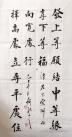 發上等願結中等緣
享下等福
擇高處立尋平處住
向寬處行